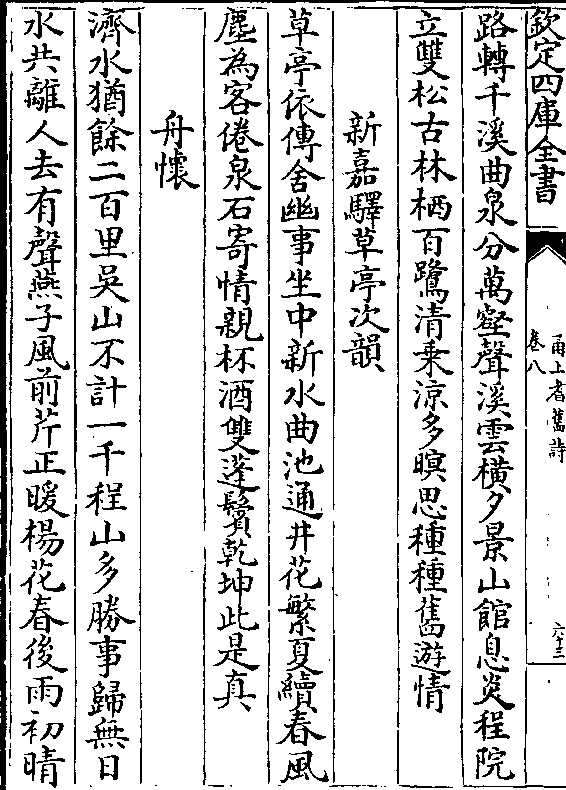 欽定四庫全書
甬上耆舊詩
卷八
六十三
路轉千溪曲泉分萬壑聲溪雲橫夕景山館息炎程院
立雙松古林栖百鷺清乗涼多暝思種種舊遊情
新嘉驛草亭次韻
草亭依傳舍幽事坐中新水曲池通井花繁夏續春風
塵為客倦泉石寄情親杯酒雙蓬鬢乾坤此是真
舟懷
濟水猶餘二百里吳山不計一千程山多勝事歸無日
水共離人去有聲燕子風前芹正暖楊花春後雨初晴